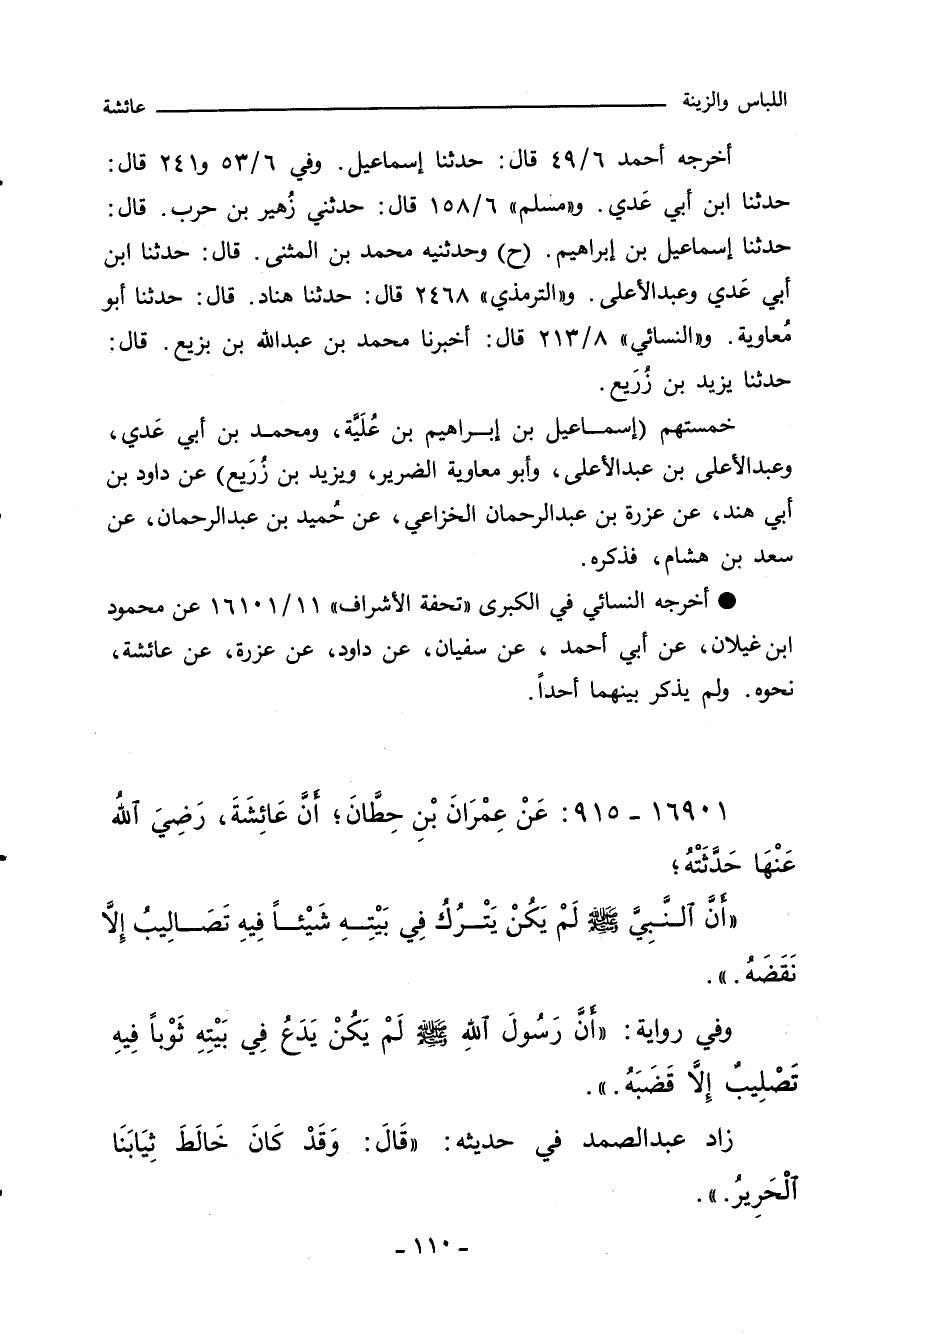 اللباس والزينة ــــــــ عائشة
أخرجه أحمد ٤٩/٦ قال: حدثنا إسماعيل. وفي ٥٣/٦ و٢٤١ قال:
حدثنا ابن أبي عَدي. و«مسلم» ١٥٨/٦ قال: حدثني زُهير بن حرب. قال:
حدثنا إسماعيل بن إبراهيم. (ح) وحدثنيه محمد بن المثنى. قال: حدثنا ابن
أبي عَدي وعبدالأعلى. و«الترمذي» ٢٤٦٨ قال: حدثنا هناد. قال: حدثنا أبو
مُعاوية. و«النسائي» ٢١٣/٨ قال: أخبرنا محمد بن عبدالله بن بزيع. قال:
حدثنا يزيد بن زُرَيع.
خمستهم (إسماعيل بن إبراهيم بن عُلَيَّة، ومحمد بن أبي عَدي،
وعبدالأعلى بن عبدالأعلى، وأبو معاوية الضرير، ويزيد بن زُرَيع) عن داود بن
أبي هند، عن عزرة بن عبدالرحمان الخزاعي، عن حُميد بن عبدالرحمان، عن
سعد بن هشام، فذكره.
● أخرجه النسائي في الكبرى «تحفة الأشراف» ١٦١٠١/١١ عن محمود
ابن غيلان، عن أبي أحمد ، عن سفيان، عن داود، عن عزرة، عن عائشة،
نحوه. ولم يذكر بينهما أحداً.
١٦٩٠١ ـ ٩١٥: عَنْ عِمْرَانَ بْنِ حِطَّانَ؛ أَنَّ عَائِشَةَ، رَضِيَ ٱللهُ
عَنْهَا حَدَّثَتْهُ؛
«أَنَّ ٱلنَّبِيَّ ﷺ لَمْ يَكُنْ يَتْرُكُ فِي بَيْتِهِ شَيْئاً فِيهِ تَصَالِيبُ إِلَّا
نَقَضَهُ.».
وفي رواية: «أَنَّ رَسُولَ ٱللهِ ﷺ لَمْ يَكُنْ يَدَعُ فِي بَيْتِهِ ثَوْباً فِيهِ
تَصْلِيبٌ إِلَّا قَضَبَهُ.».
زاد عبدالصمد في حديثه: «قَالَ: وَقَدْ كَانَ خَالَطَ ثِيَابَنَا
ٱلْحَرِيرُ.».
ـ ١١٠ ـ